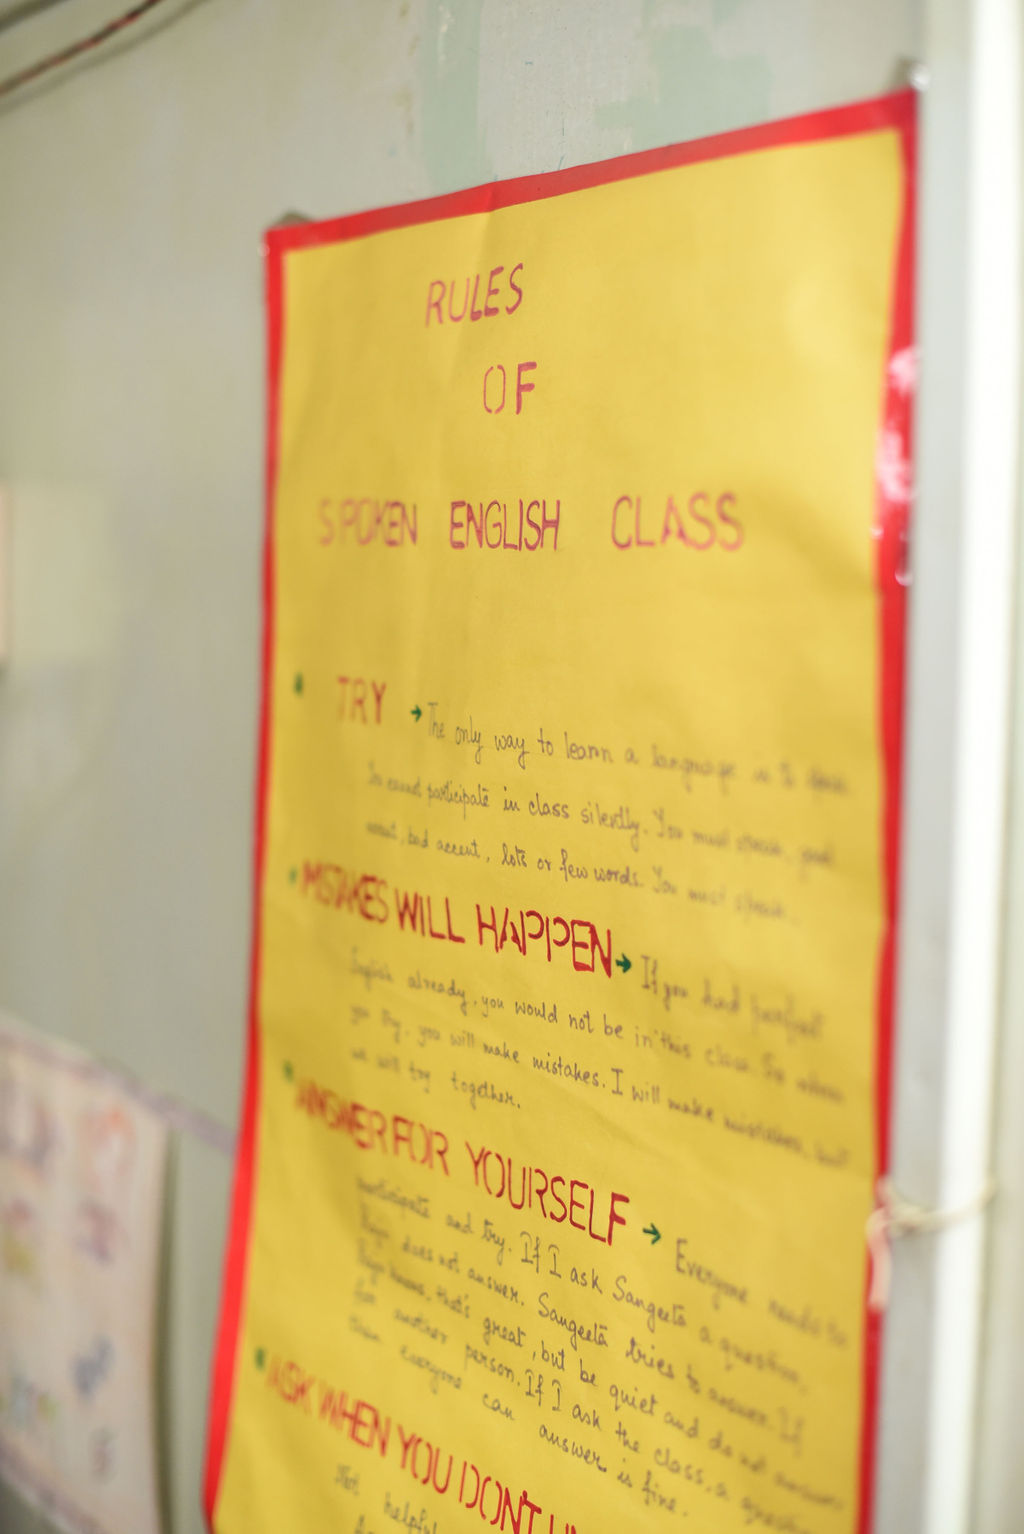 RULES
OF
SPOKEN ENGLISH CLASS
TRY → The only way to learn a language is to speak.
participate in class silently. You must speak, good
accent, bad accent, lots or few words. You must speak.
MISTAKES WILL HAPPEN → If you had perfect
English already, you would not be in this class. So when
you try, you will make mistakes. I will make mistakes, but
we will try together.
ANSWER FOR YOURSELF → Everyone needs to
participate and try. If I ask Sangeeta a question,
does not answer. Sangeeta tries to answer. If
knows, that's great, but be quiet and do not answer
for another person. If I ask the class, a question
then everyone can answer is fine.
ASK WHEN YOU DON'T
Not